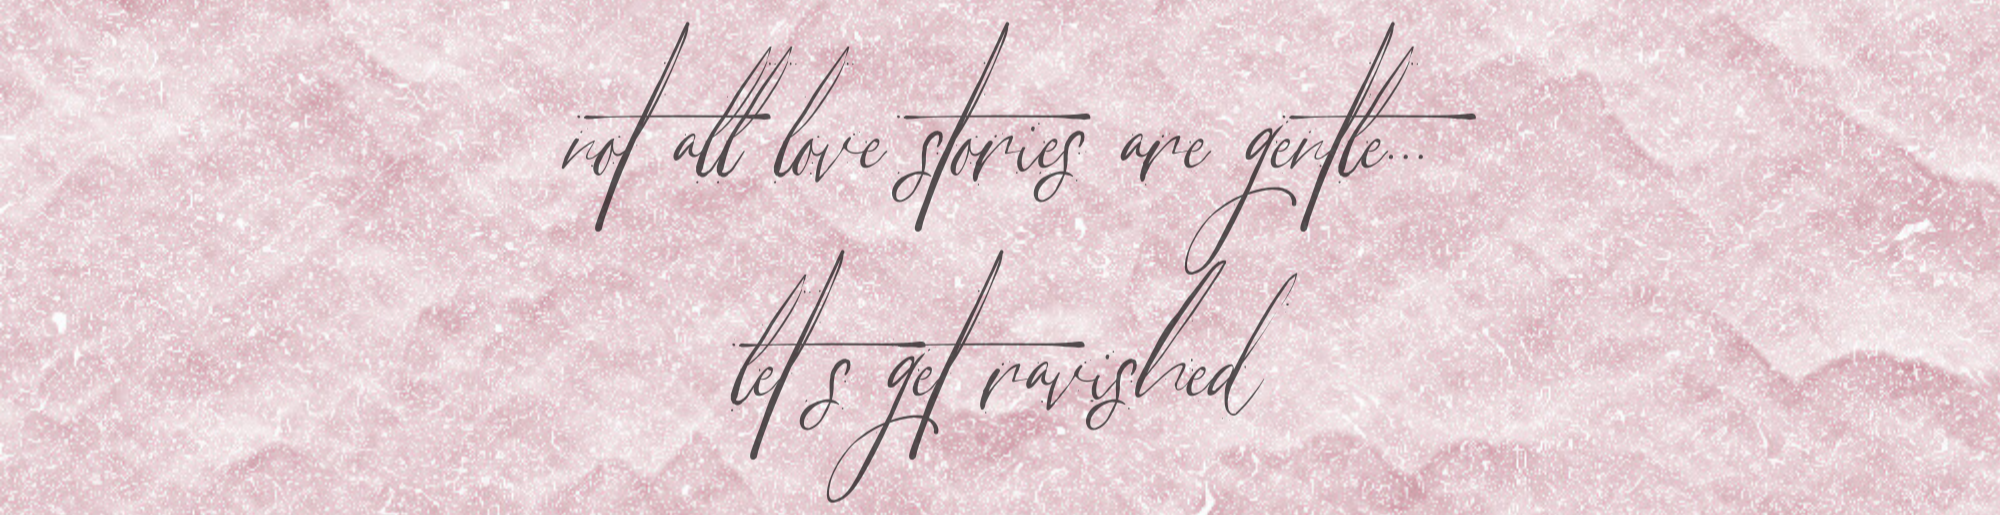 not all love stories are gentle...
let's get ravished